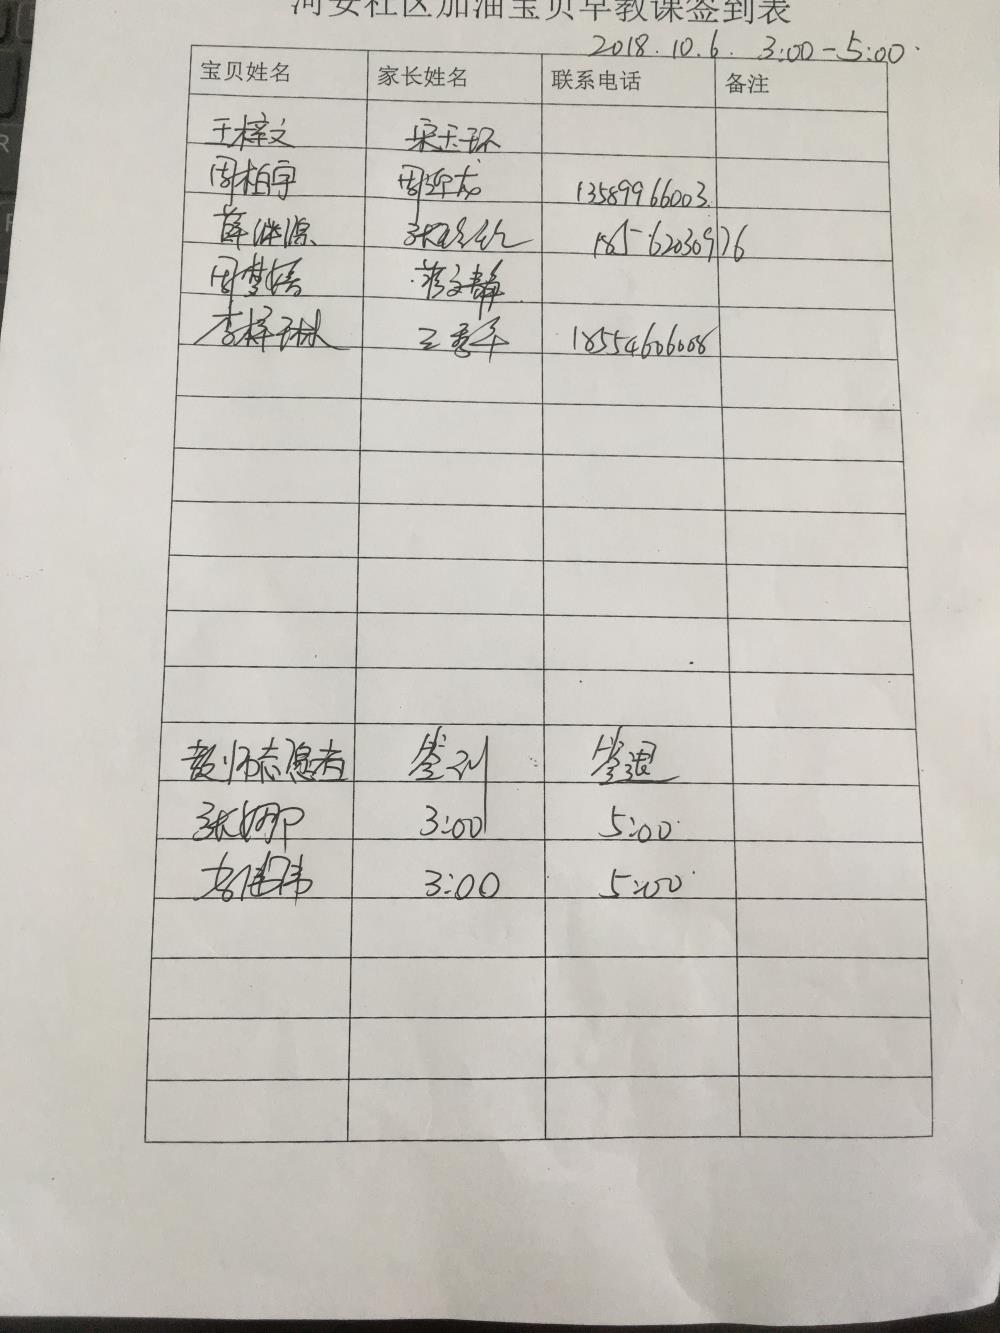 河安社区加油宝贝早教课签到表
2018.10.6. 3:00-5:00
宝贝姓名 家长姓名 联系电话 备注
王梓文 宋玉环
周柏宇 13589966003
薛渊源 185-62030976
周梦
李梓琳 王秀军 18554606008
教师志愿者 签到 签退
张娜 3:00 5:00
3:00 5:00